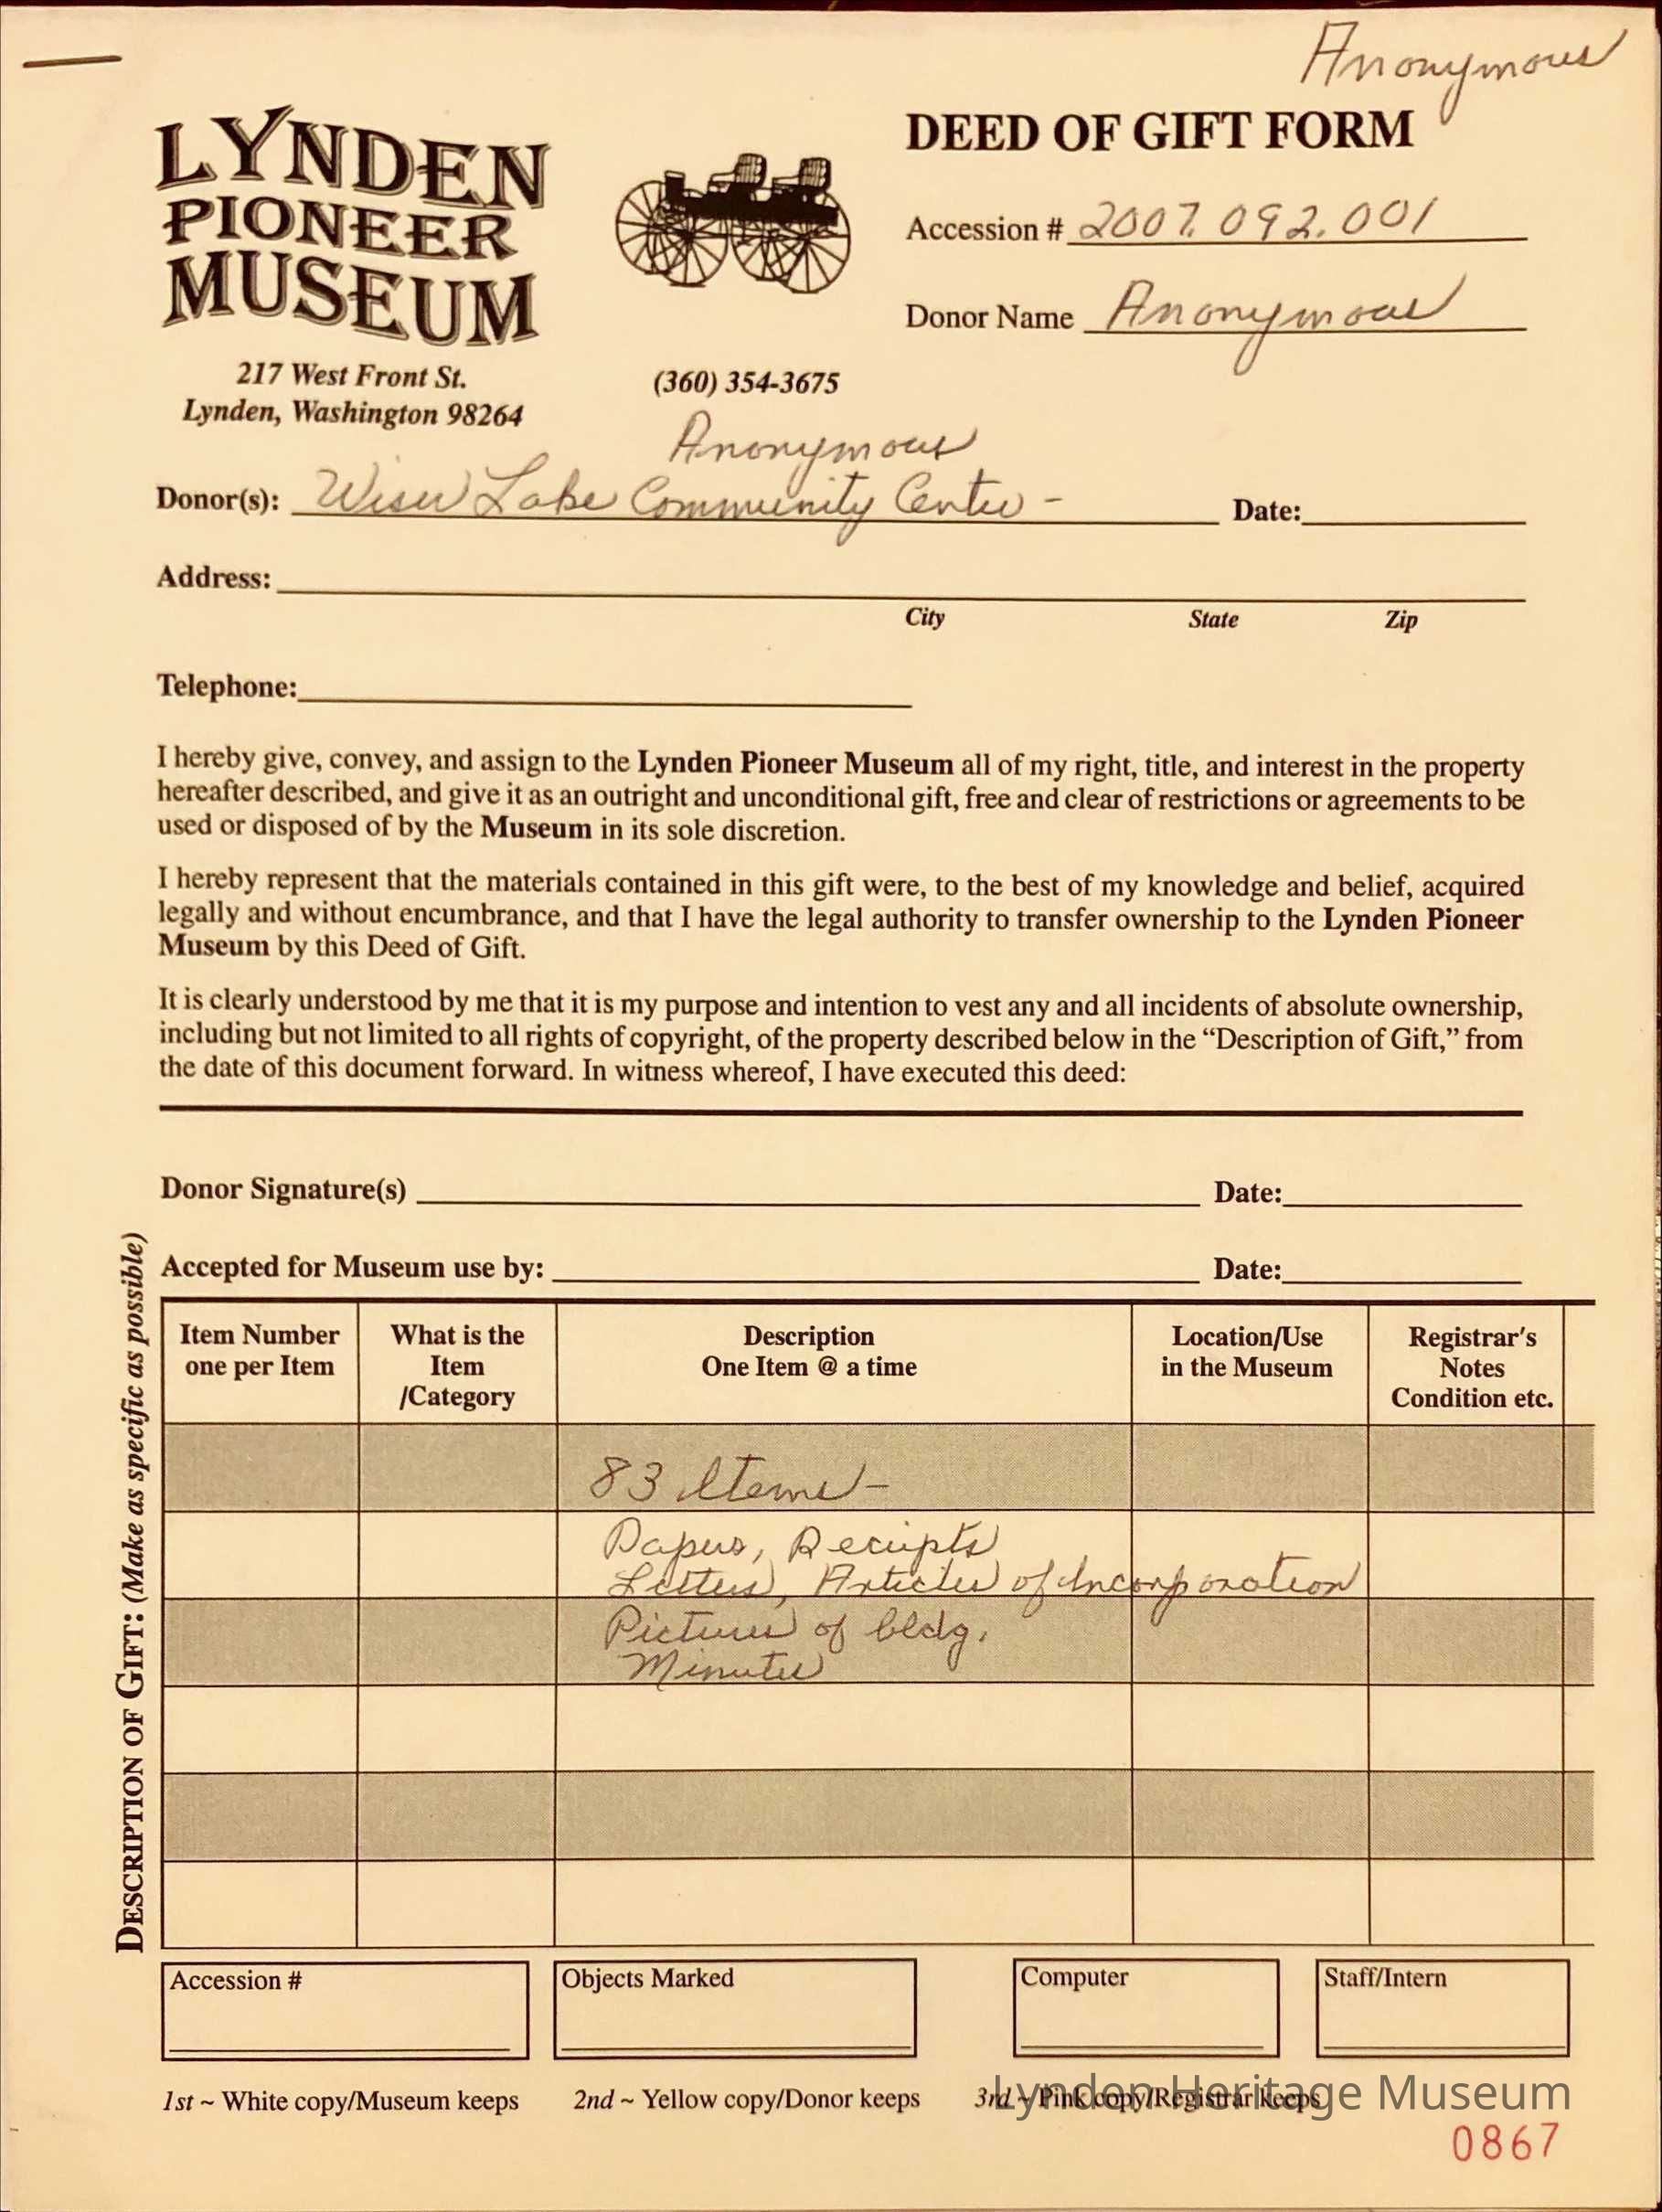 Anonymous
LYNDEN
PIONEER
MUSEUM
217 West Front St.
Lynden, Washington 98264
(360) 354-3675
DEED OF GIFT FORM
Accession # 2007.092.001
Donor Name Anonymous
Anonymous
Donor(s): Wiser Lake Community Center - Date:
Address:
City State Zip
Telephone:
I hereby give, convey, and assign to the Lynden Pioneer Museum all of my right, title, and interest in the property
hereafter described, and give it as an outright and unconditional gift, free and clear of restrictions or agreements to be
used or disposed of by the Museum in its sole discretion.
I hereby represent that the materials contained in this gift were, to the best of my knowledge and belief, acquired
legally and without encumbrance, and that I have the legal authority to transfer ownership to the Lynden Pioneer
Museum by this Deed of Gift.
It is clearly understood by me that it is my purpose and intention to vest any and all incidents of absolute ownership,
including but not limited to all rights of copyright, of the property described below in the “Description of Gift,” from
the date of this document forward. In witness whereof, I have executed this deed:
Donor Signature(s) Date:
Accepted for Museum use by: Date:
DESCRIPTION OF GIFT: (Make as specific as possible)
Item Number
one per Item
What is the
Item
/Category
Description
One Item @ a time
Location/Use
in the Museum
Registrar's
Notes
Condition etc.
83 Items -
Papers, Receipts
Letters, Articles of Incorporation
Pictures of bldg.
Minutes
Accession #
Objects Marked
Computer
Staff/Intern
1st ~ White copy/Museum keeps 2nd ~ Yellow copy/Donor keeps 3rd ~ Pink copy/Registrar keeps
Lynden Heritage Museum
0867